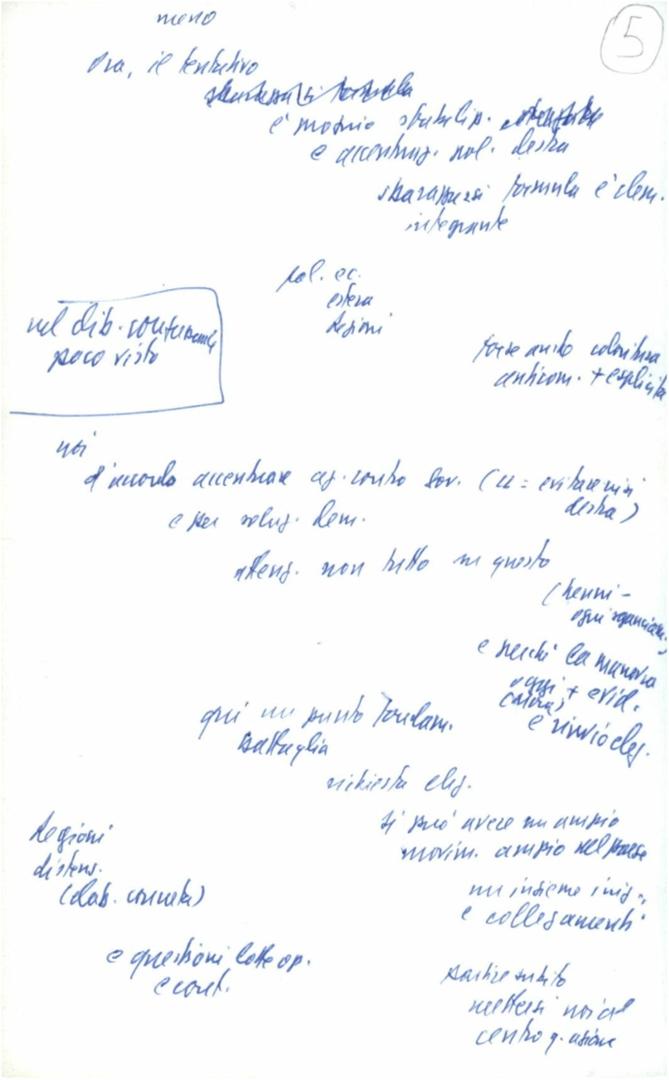 5
meno
Ora, il tentativo
è proprio stabiliz.
e accentuaz. pol. destra
sbarazzarsi formula è elem.
integrante
pol. ec.
estera
Regioni
nel dib. congressuale
poco visto
forse anche coloritura
anticom. + esplicita
noi
d'accordo accentuare az. contro Gov. (cc = evitare crisi
destra)
e per soluz. dem.
attenz. non tutto in questo
(Nenni -
ogni sganciam.)
e perché la manovra
oggi + evid.
(Moro)
e rinvio elez.
qui un punto fondam.
battaglia
richiesta elez.
Regioni
distens.
(elab. concreta)
si può avere un ampio
movim. ampio nel paese
un insieme iniz.
e collegamenti
e questioni lotte op.
e cont.
partire subito
mettersi noi al
centro q. azione